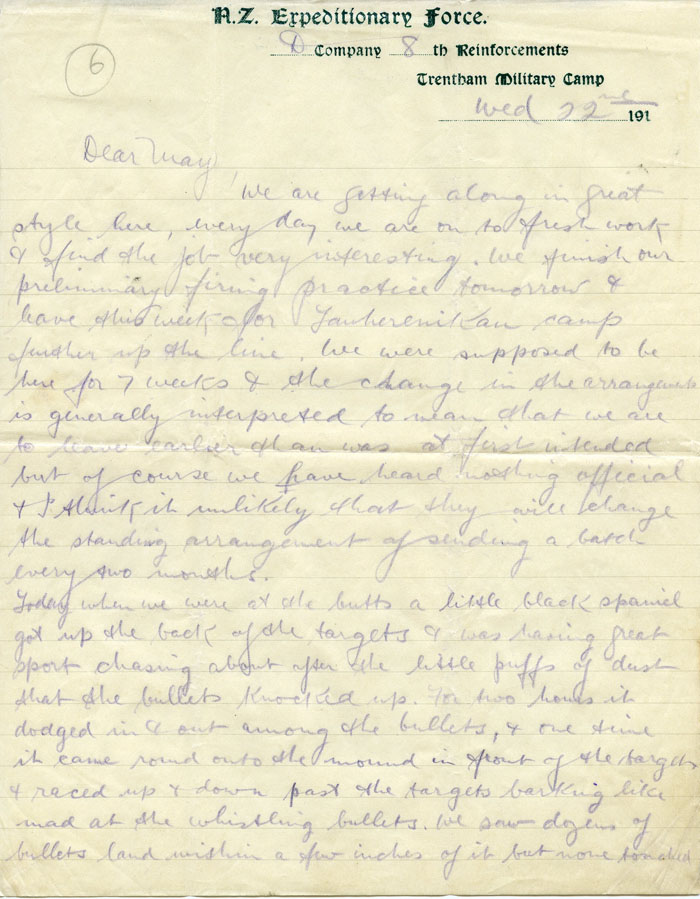 N.Z. Expeditionary Force.
D Company 8 th Reinforcements
Trentham Military Camp
Wed 22nd 191
6
Dear May
We are getting along in great
style here, every day we are on to fresh work
& find the job very interesting. We finish our
preliminary firing practice tomorrow &
leave this week for Tauherenikau camp
further up the line. We were supposed to be
here for 7 weeks & the change in the arrangements
is generally interpreted to mean that we are
to leave earlier than was at first intended
but of course we have heard nothing official
& I think it unlikely that they will change
the standing arrangement of sending a batch
every two months.
Today when we were at the butts a little black spaniel
got up the back of the targets & was having great
sport chasing about after the little puffs of dust
that the bullets knocked up. For two hours it
dodged in & out among the bullets, & one time
it came round onto the mound in front of the targets
& raced up & down past the targets barking like
mad at the whistling bullets. We saw dozens of
bullets land within a few inches of it but none touched